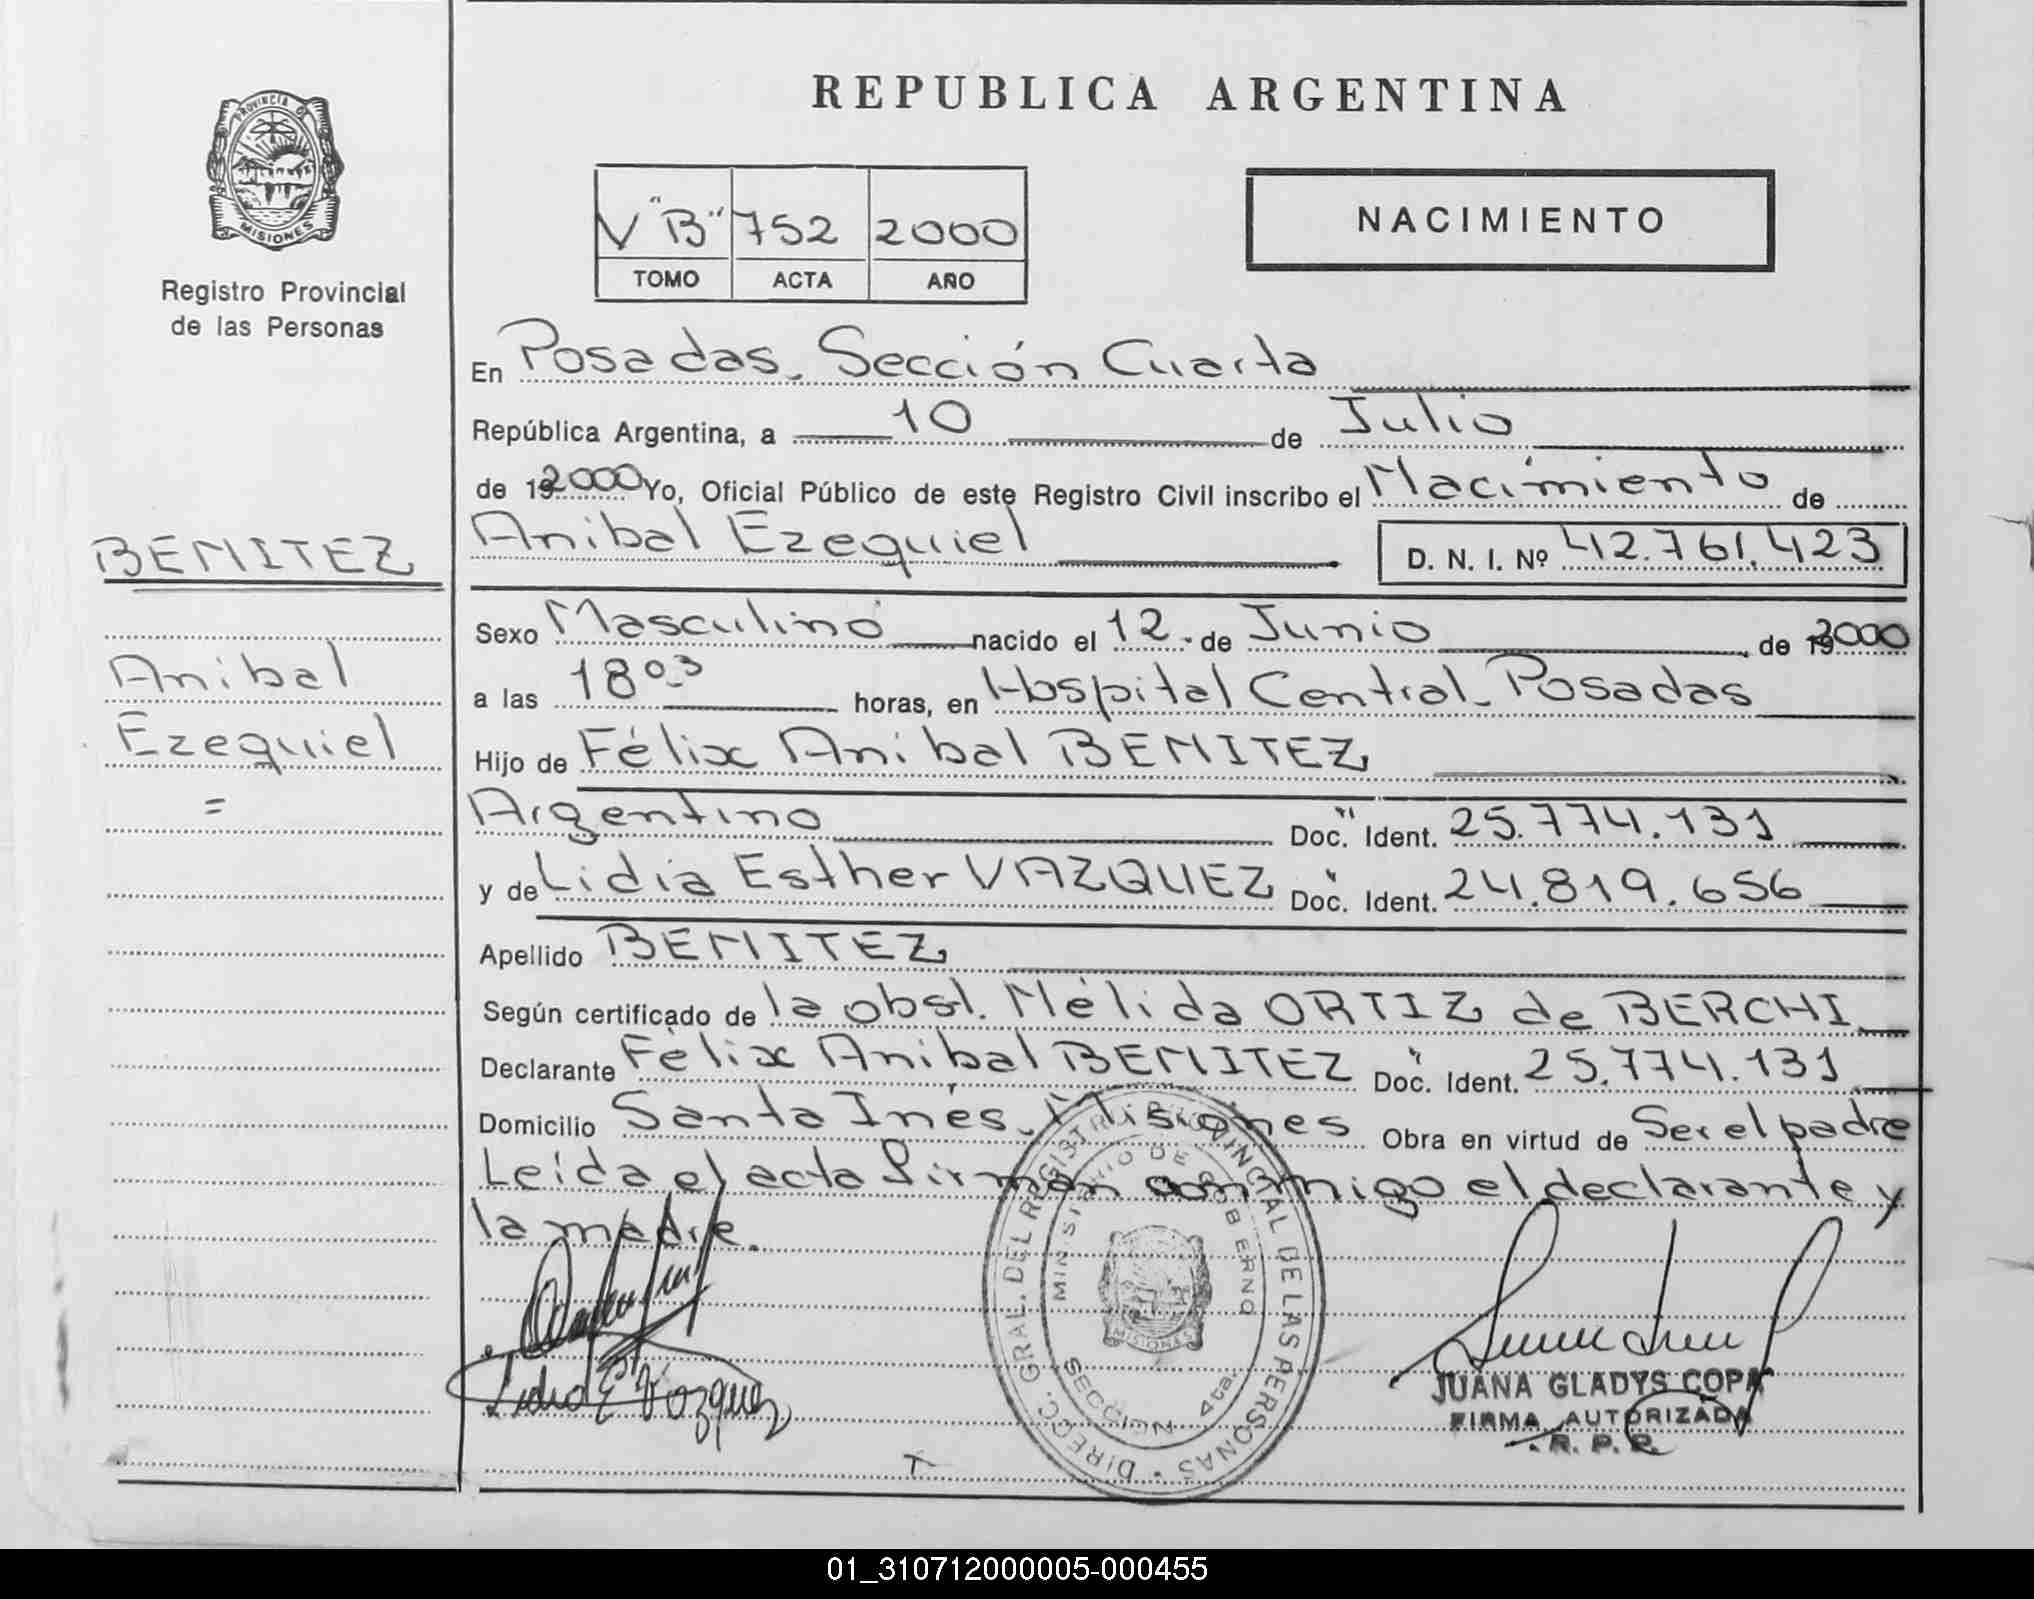 REPUBLICA ARGENTINA
PROVINCIA DE
MISIONES
Registro Provincial
de las Personas
V "B" 752 2000
TOMO ACTA AÑO
NACIMIENTO
En Posadas, Sección Cuarta
República Argentina, a 10 de Julio
de 19 2000 Yo, Oficial Público de este Registro Civil inscribo el Nacimiento de
Anibal Ezequiel D. N. I. Nº 42.761.423
BENITEZ
Anibal
Ezequiel
=
Sexo Masculino nacido el 12 de Junio de 19 2000
a las 18 03 horas, en Hospital Central - Posadas
Hijo de Félix Anibal BENITEZ
Argentino Doc. " Ident. 25.774.131
y de Lidia Esther VAZQUEZ Doc. " Ident. 24.819.656
Apellido BENITEZ
Según certificado de la obst. Nélida ORTIZ de BERCHI
Declarante Félix Anibal BENITEZ Doc. " Ident. 25.774.131
Domicilio Santa Inés, Misiones Obra en virtud de Ser el padre
Leída el acta firman conmigo el declarante y
la madre.
Lidia E Vazquez
DIREC. GRAL. DEL REGISTRO PROVINCIAL DE LAS PERSONAS
MINISTERIO DE GOBIERNO
MISIONES
SECCION 4ta.
JUANA GLADYS COPA
FIRMA AUTORIZADA
R. P. P.
01_310712000005-000455